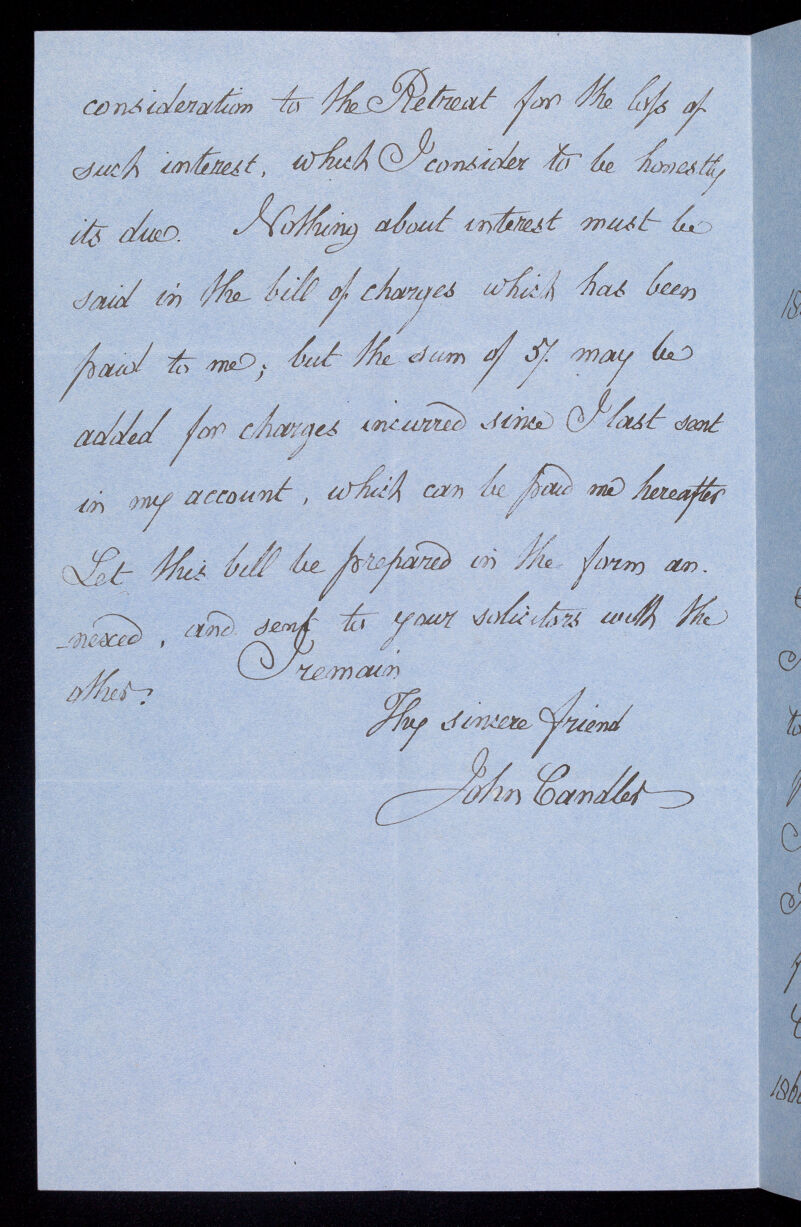 consideration to the Retreat for the loss of
such interest, which I consider to be honestly
its due. Nothing about interest must be
said in the bill of charges which has been
paid to me; but the sum of 5/. may be
added for charges incurred since I last sent
in my account, which can be paid me hereafter
Let this bill be prepared in the form an-
-nexed, and sent to your solicitors with the
other. I remain
Thy sincere friend
John Candler